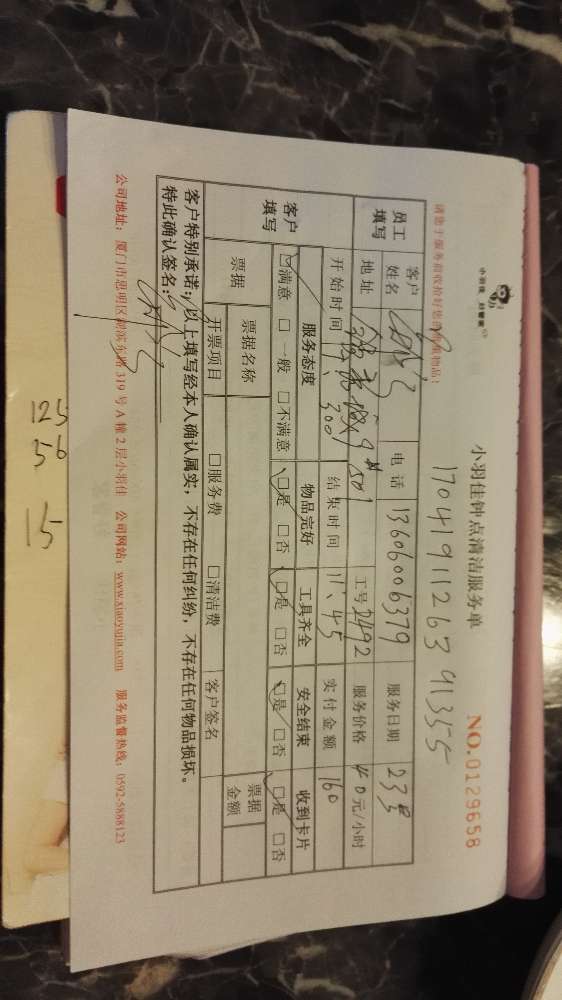 小羽佳钟点清洁服务单
NO.0129658
1704191126341355
请您于服务前收拾好您的贵重物品:
员工填写
客户姓名
电话 13606006379
服务日期 23号
地址
工号 2492
服务价格 40元/小时
开始时间
结束时间 11:45
实付金额 160
客户填写
服务态度 物品完好 工具齐全 安全结束 收到卡片
☑满意 □一般 □不满意 ☑是 □否 ☑是 □否 ☑是 □否 ☑是 □否
票据
票据名称
票据金额
开票项目 □服务费 □清洁费 客户签名
客户特别承诺:以上填写经本人确认属实,不存在任何纠纷,不存在任何物品损坏。
特此确认签名:
公司地址:厦门市思明区湖滨东路319号A幢2层小羽佳 公司网站:www.xiaoyujia.com 服务监督热线:0592-5888123
125
56
15